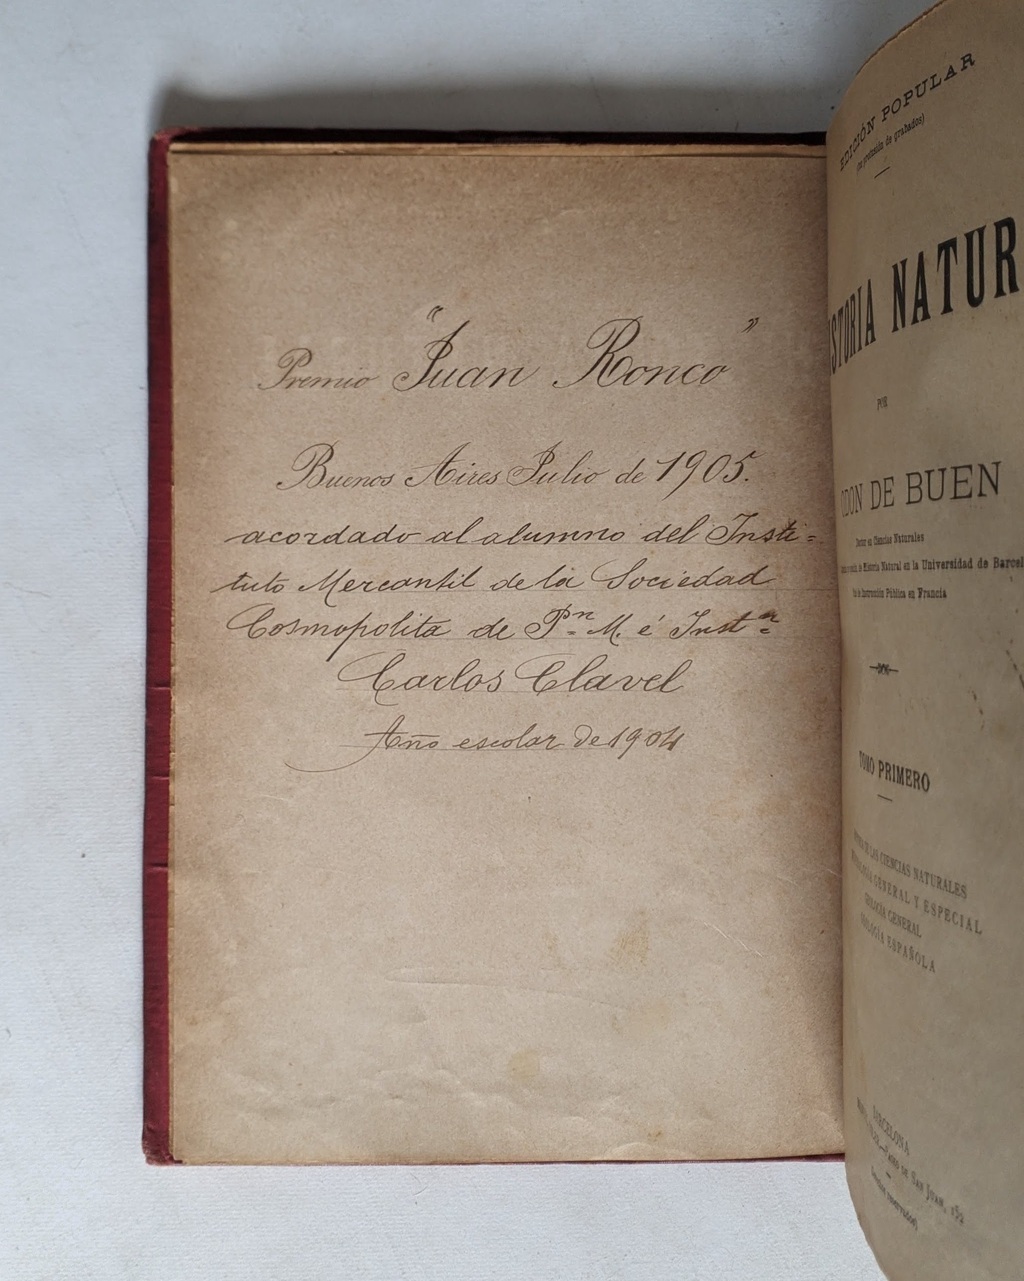 Premio "Juan Ronco"
Buenos Aires Julio de 1905.
acordado al alumno del Insti=
tuto Mercantil de la Sociedad
Cosmopolita de Pn= M. é Insta=
Carlos Clavel
Año escolar de 1904
EDICIÓN POPULAR
(con profusión de grabados)
STORIA NATUR
POR
ODON DE BUEN
Doctor en Ciencias Naturales
de Historia Natural en la Universidad de Barcel
de Instrucción Pública en Francia
TOMO PRIMERO
DE LAS CIENCIAS NATURALES
GENERAL Y ESPECIAL
GENERAL
ESPAÑOLA
BARCELONA
DE SAN JUAN, 152